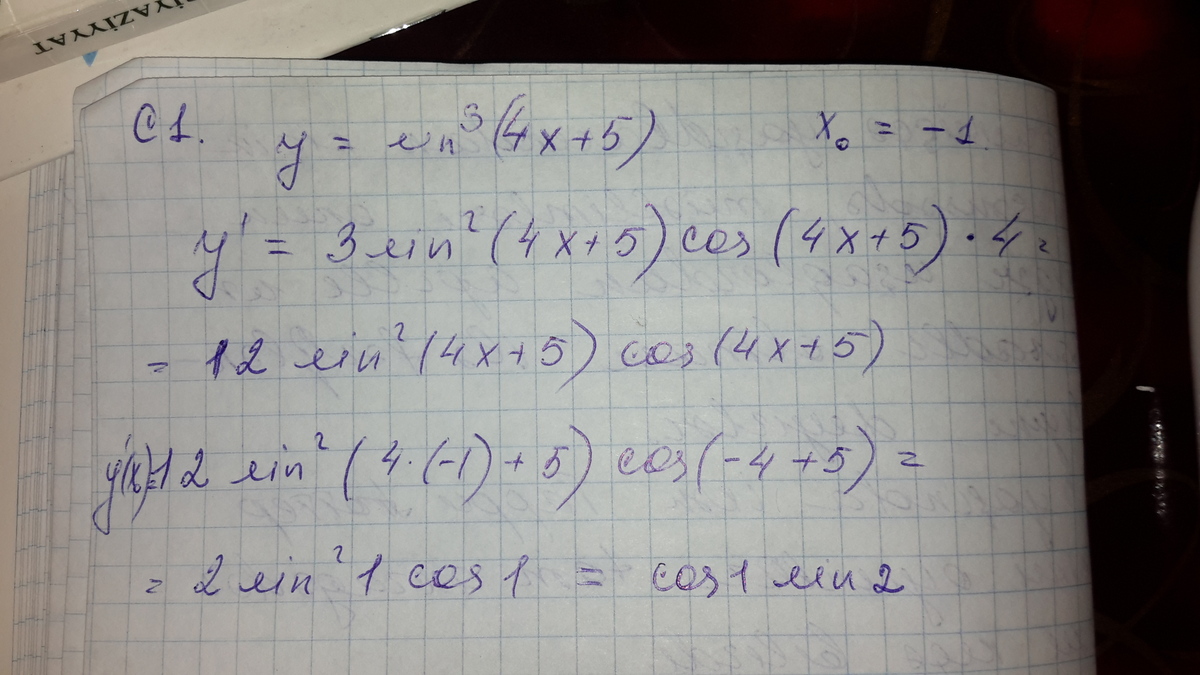 RİYAZİYYAT
C1. y = sin³(4x+5) x₀ = -1.
y' = 3 sin²(4x+5) cos(4x+5)·4 =
= 12 sin²(4x+5) cos(4x+5)
y'(x)=12 sin²(4·(-1)+5) cos(-4+5) =
= 2 sin²1 cos1 = cos1 sin2